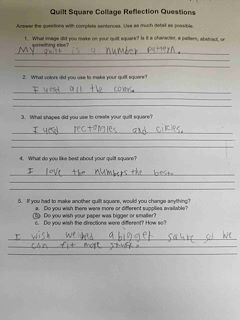 Quilt Square Collage Reflection Questions
Answer the questions with complete sentences. Use as much detail as possible.
1. What image did you make on your quilt square? Is it a character, a pattern, abstract, or
something else?
My quilt is a number pattern.
2. What colors did you use to make your quilt square?
I used all the
3. What shapes did you use to create your quilt square?
I used rectangles and
4. What do you like best about your quilt square?
I love the numbers the best.
5. If you had to make another quilt square, would you change anything?
a. Do you wish there were more or different supplies available?
b. Do you wish your paper was bigger or smaller?
c. Do you wish the directions were different? How so?
I wish we had a bigger so we
can fit more